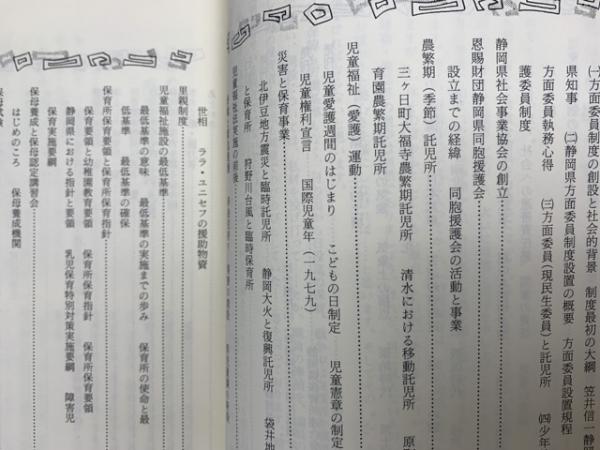 ㈠方面委員制度の創設と社会的背景　制度最初の大綱　笠井信一静岡
県知事　㈡静岡県方面委員制度設置の概要　方面委員設置規程
方面委員執務心得　㈢方面委員（現民生委員）と託児所　㈣少年
護委員制度
静岡県社会事業協会の創立
恩賜財団静岡県同胞援護会
設立までの経緯　同胞援護会の活動と事業
農繁期（季節）託児所
三ヶ日町大福寺農繁期託児所　清水における移動託児所　原
育園農繁期託児所
児童福祉（愛護）運動
児童愛護週間のはじまり　こどもの日制定　児童憲章の制定
児童権利宣言　国際児童年（一九七九）
災害と保育事業
北伊豆地方震災と臨時託児所　静岡大火と復興託児所　袋井地
と保育所　狩野川台風と臨時保育所
児童福祉法実施の前後
世相　ララ・ユニセフの援助物資
里親制度
児童福祉施設の最低基準
最低基準の意味　最低基準の実施までの歩み　保育所の使命と最
低基準　最低基準の確保
保育所保育要領と保育所保育指針
保育要領と幼稚園教育要領　保育所保育指針　保育所保育要領
静岡県における指針と要領　乳児保育特別対策実施要綱　障害児
保育実施要綱
保母養成と保母認定講習会
はじめのころ　保母養成機関
保母試験